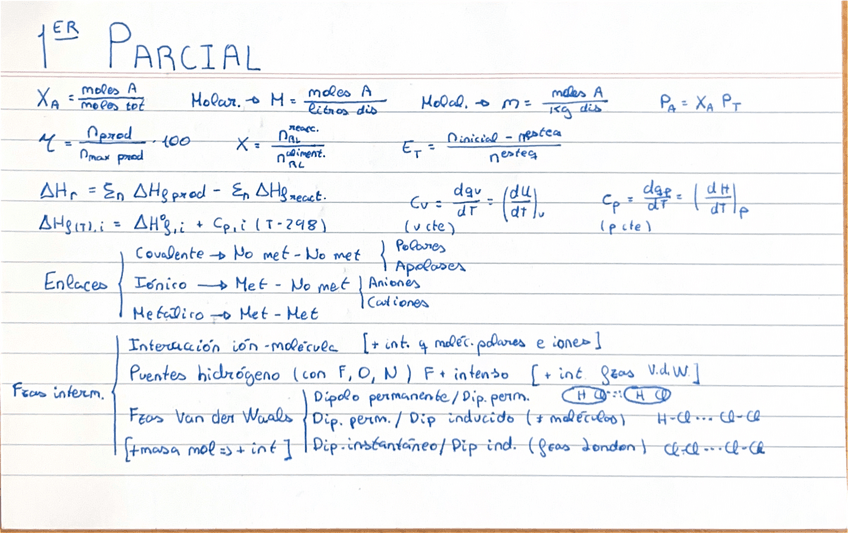 1ER PARCIAL
X_A = moles A / moles tot   Molar. → M = moles A / litros dis   Molal. → m = moles A / Kg dis   P_A = X_A P_T
η = n prod / n max prod · 100   X = n_RL^reacc. / n_RL^aliment.   E_T = n inicial - n esteq / n esteq
ΔHr = Σn ΔHf prod - Σn ΔHf react.   Cv = dqv/dT = (dU/dt)v   Cp = dqp/dT = (dH/dT)p
ΔHf(T),i = ΔH°f,i + Cp,i (T-298)   (v cte)   (p cte)
Enlaces
Covalente → No met - No met
Polares
Apolares
Iónico → Met - No met
Aniones
Cationes
Metálico → Met - Met
Fzas interm.
Interacción ión-molécula [+ int. q moléc. polares e iones]
Puentes hidrógeno (con F, O, N) F + intenso [+ int fzas V.d.W.]
Fzas Van der Waals
[+ masa mol => + int]
Dipolo permanente / Dip. perm. H Cl ··· H Cl
Dip. perm. / Dip inducido (≠ moléculas) H-Cl ··· Cl-Cl
Dip. instantáneo / Dip ind. (fzas London) Cl-Cl ··· Cl-Cl